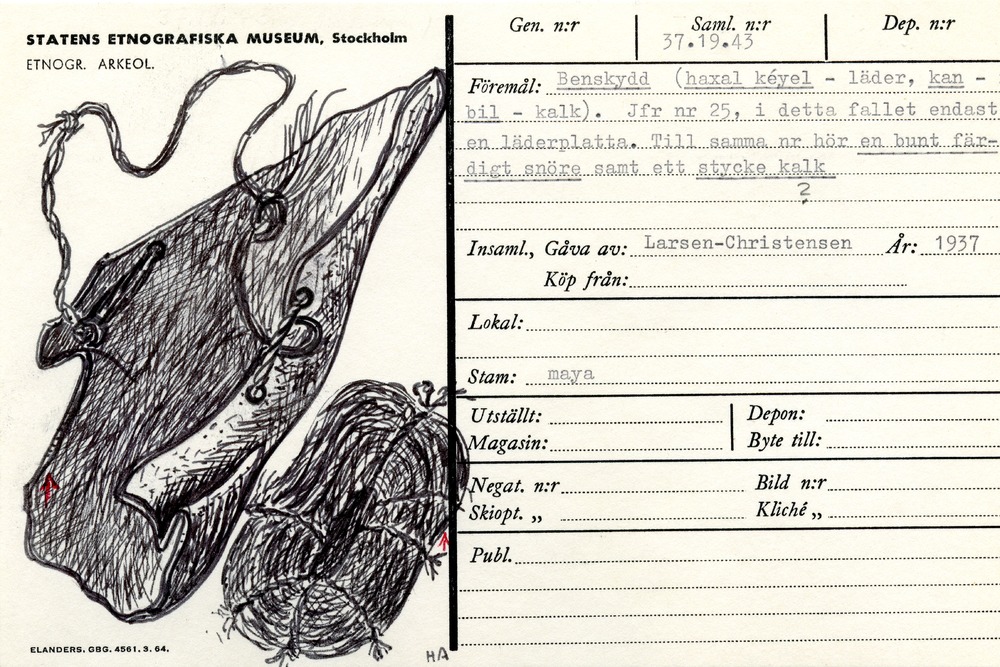 STATENS ETNOGRAFISKA MUSEUM, Stockholm
ETNOGR. ARKEOL.
Gen. n:r Saml. n:r Dep. n:r
37.19.43
Föremål: Benskydd (haxal kéyel - läder, kan -
bil - kalk). Jfr nr 25, i detta fallet endast
en läderplatta. Till samma nr hör en bunt fär-
digt snöre samt ett stycke kalk
?
Insaml., Gåva av: Larsen-Christensen År: 1937
Köp från:
Lokal:
Stam: maya
Utställt: Depon:
Magasin: Byte till:
Negat. n:r Bild n:r
Skiopt. „ Kliché „
Publ.
ELANDERS, GBG. 4561. 3. 64.
HA